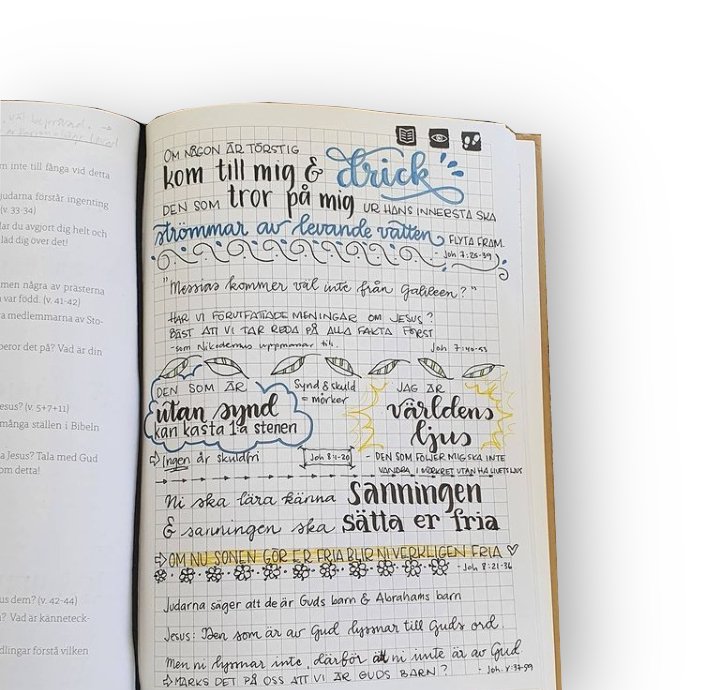 m inte till fånga vid detta
judarna förstår ingenting
(v. 33-34)
lar du avgjort dig helt och
läd dig över det!
men några av prästerna
var född. (v. 41-42)
a medlemmarna av Sto-
beror det på? Vad är din
esus? (v. 5+7+11)
många ställen i Bibeln
a Jesus? Tala med Gud
om detta!
us dem? (v. 42-44)
n? Vad är känneteck-
dlingar förstå vilken
OM NÅGON ÄR TÖRSTIG
kom till mig & drick
DEN SOM tror på mig UR HANS INNERSTA SKA
strömmar av levande vatten FLYTA FRAM.
- Joh 7:25-39
"Messias kommer väl inte från Galileen?"
HAR VI FÖRUTFATTADE MENINGAR OM JESUS?
BÄST ATT VI TAR REDA PÅ ALLA FAKTA FÖRST
-som Nikodemus uppmanar till. Joh 7:40-53
DEN SOM ÄR
utan synd
kan kasta 1:a stenen
Synd & skuld
= mörker
JAG ÄR
världens
ljus
⇨ Ingen är skuldfri
Joh 8:1-20
- DEN SOM FÖLJER MIG SKA INTE
VANDRA I MÖRKRET UTAN HA LIVETS LJUS
Ni ska lära känna sanningen
& sanningen ska sätta er fria
⇨ OM NU SONEN GÖR ER FRIA BLIR NI VERKLIGEN FRIA ♡
- Joh 8:21-36
Judarna säger att de är Guds barn & Abrahams barn
Jesus: Den som är av Gud lyssnar till Guds ord.
Men ni lyssnar inte, därför att ni inte är av Gud.
⇨ MÄRKS DET PÅ OSS ATT VI ÄR GUDS BARN? - Joh. 8:37-59